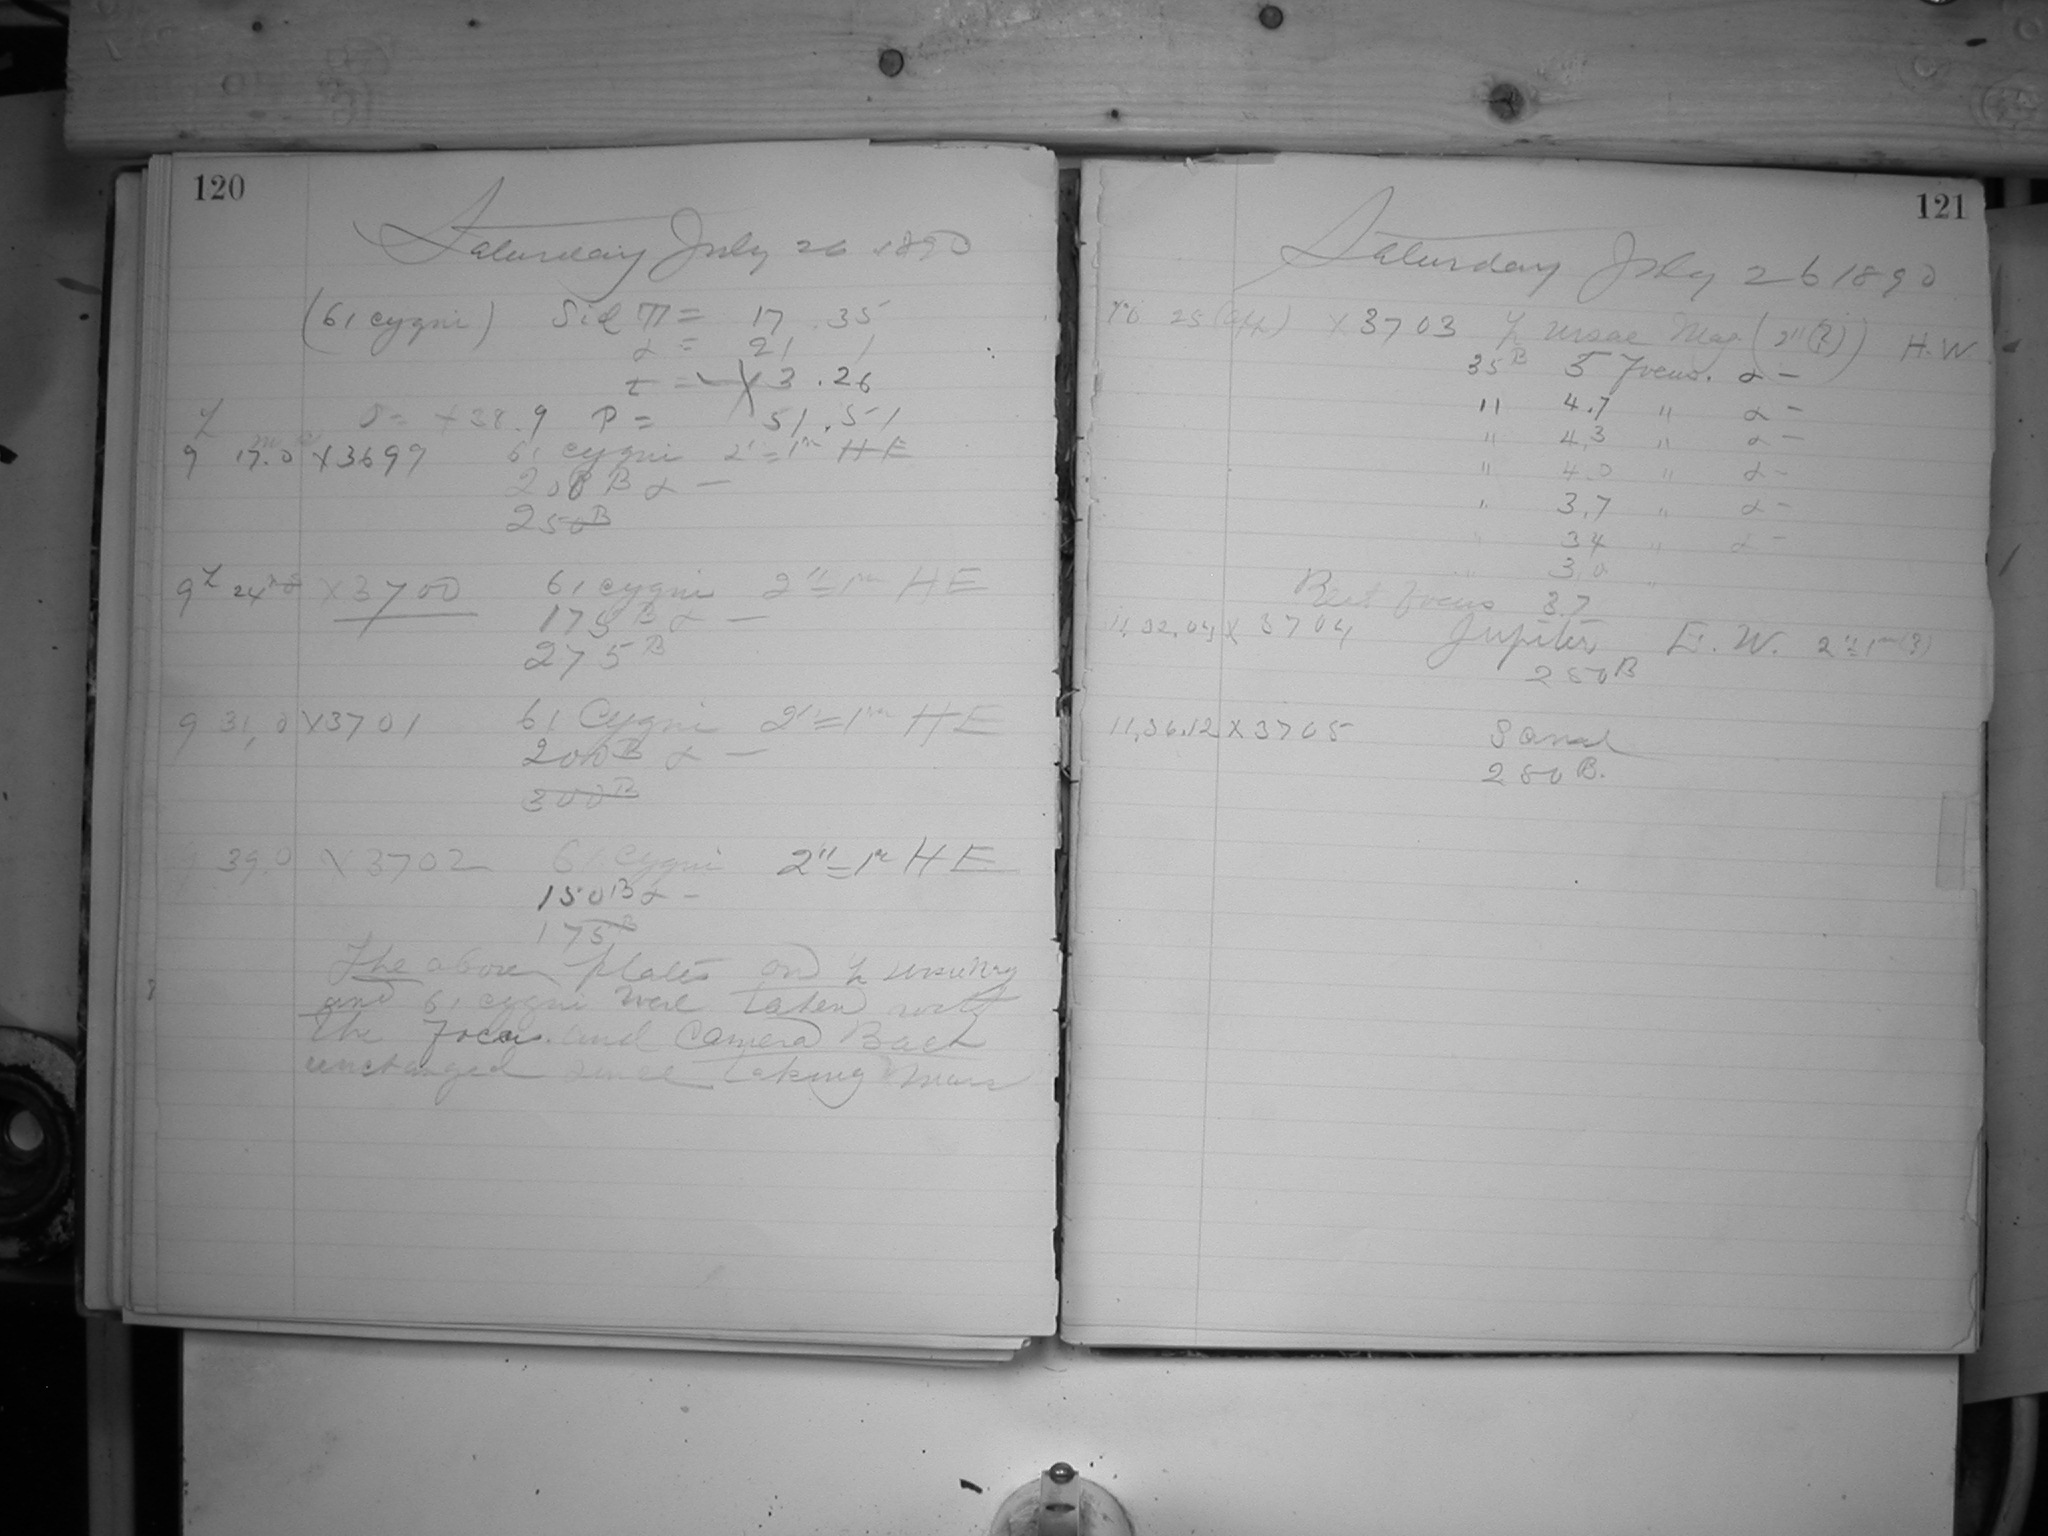 120
Saturday July 26 1890
(61 cygni) Sid T = 17.35
α = 21 1
t = 3.26
δ = +38.9 P = 51.51
9 17.0 X3699 61 cygni 2"=1m HE
200 B α —
250B
9h 24m X3700 61 cygni 2"=1m HE
175 B α —
275 B
9 31,0 X3701 61 Cygni 2"=1m HE
200 B α —
300B
39.0 X3702 61 cygni 2"=1m HE
150B α —
175B
The above plates on ursae
and 61 cygni were taken with
the Focus and Camera Back
unchanged since taking Mars
121
Saturday July 26 1890
25 X3703 Ursae Maj (2"(?)) H.W.
35B 5 Focus. α —
11 4.7 " α —
" 4.3 " α —
" 4.0 " α —
" 3.7 " α —
" 3.4 " α —
" 3.0 "
Best focus 3.7
11,32,04 X3704 Jupiter E.W. 2"=1m(?)
250B
11,36.12 X3705
250B.